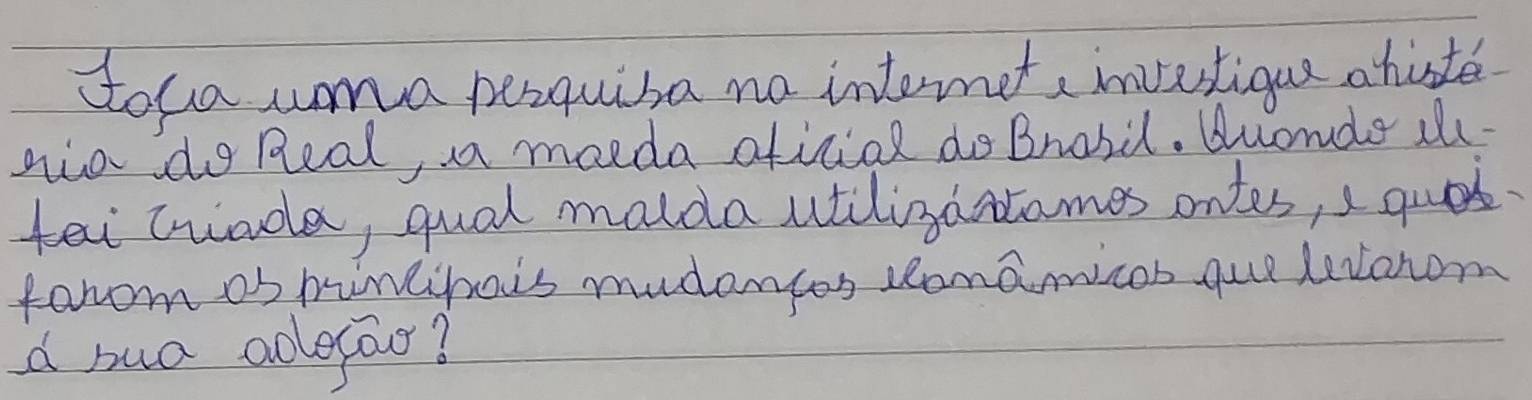 Faça uma pesquisa na internet e investigue a histó-
ria do Real, a moeda oficial do Brasil. Quando ele
foi criada, qual moeda utilizávamos antes, e quais
foram as principais mudanças econômicas que levaram
á sua adoção?